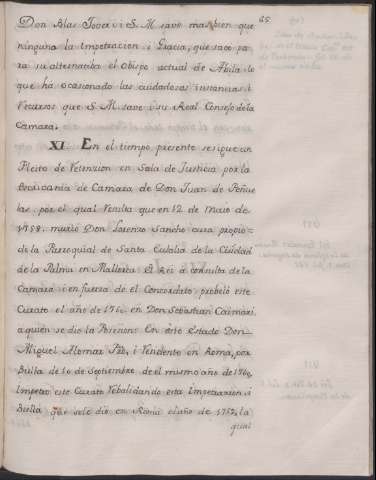 65.
Don Blas Jover i S. M. save mas bien que
ninguna la Impetracion i Gracia, que saco pa
ra su alternativa el Obispo actual de Abila lo
que ha ocasionado las cuidadosas instancias i
Recursos que S. M. save i su Real Consejo de la
Camara.
XI. En el tiempo presente se sigue un
Pleito de Retenzion en Sala de Justicia por la
Escrivania de Camara de Don Juan de Peñue
las, por el qual Resulta que en 12 de Maio de
1758. murió Don Lorenzo Sancho cura propio
de la Parroquial de Santa Eulalia de la Ciudad
de la Palma en Mallorca. El Rei à consulta de la
Camara i en fuerza de el Concordato probeiò este
Curato el año de 1760. en Don Sebastian Caimari
a quien se dio la Posesion: En este Estado Don
Miguel Alomar Pbro, i Residente en Roma, por
Bulla de 10 de Septiembre de el mismo año de 1760,
Impetrò este Curato Rebalidando esta Impetracion i
Bulla que sele dio en Roma el año de 1759, la
qual